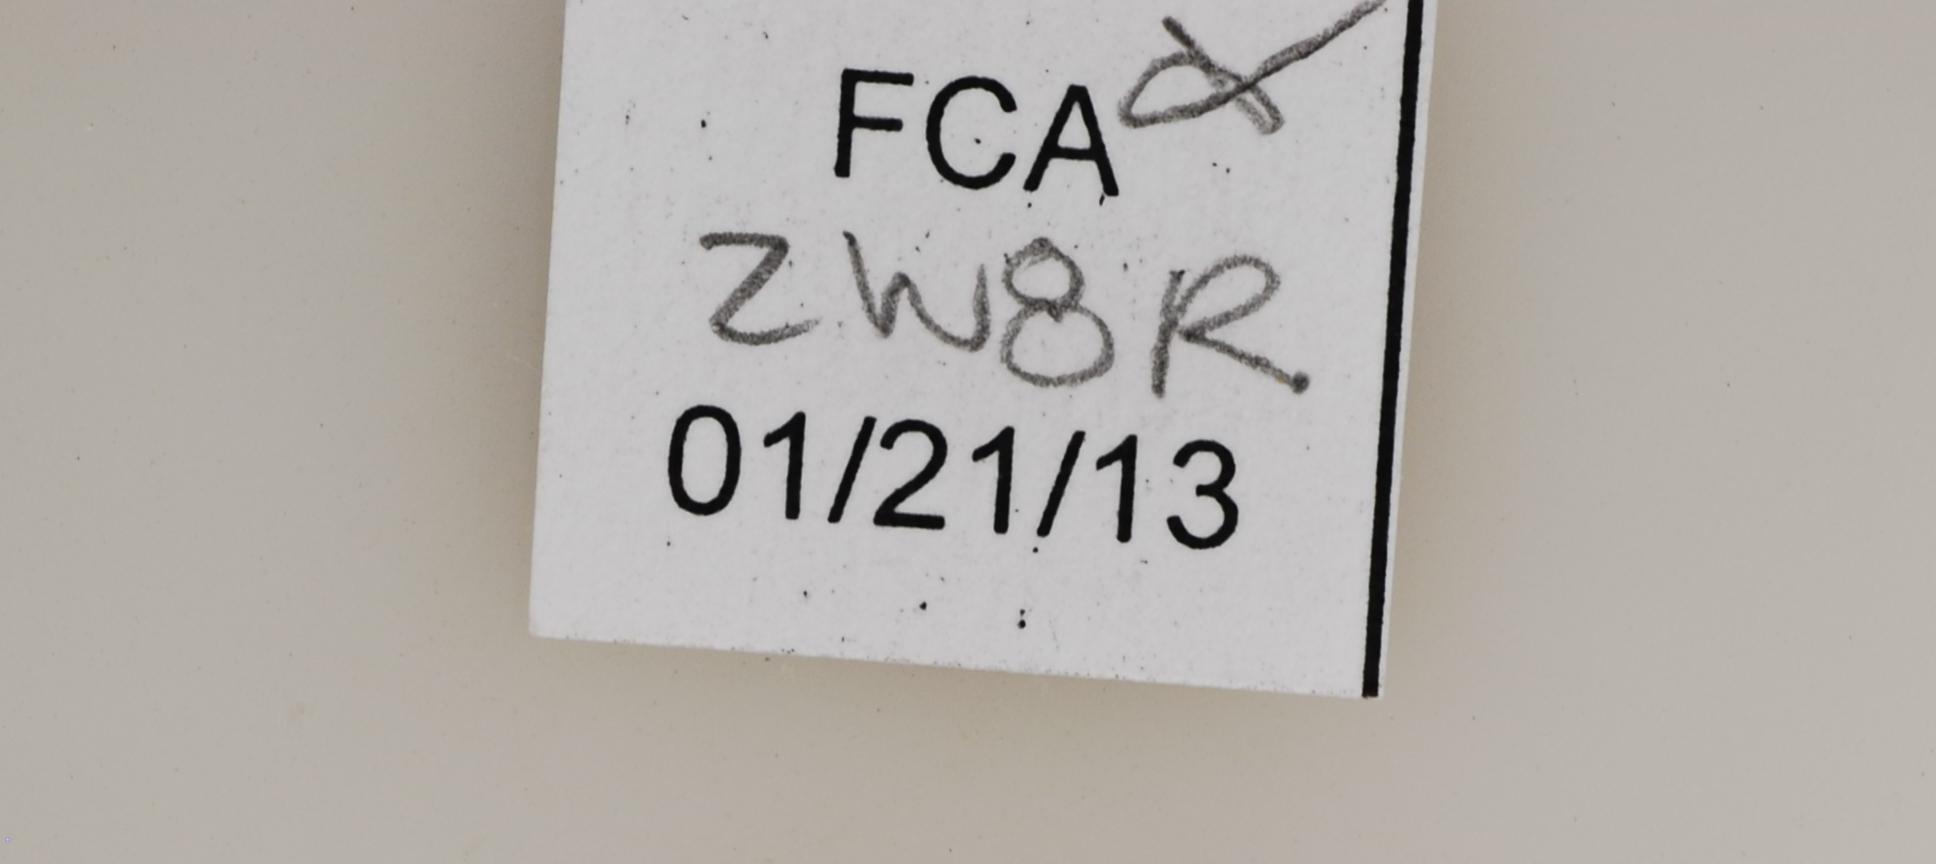 FCA
ZW8R
01/21/13